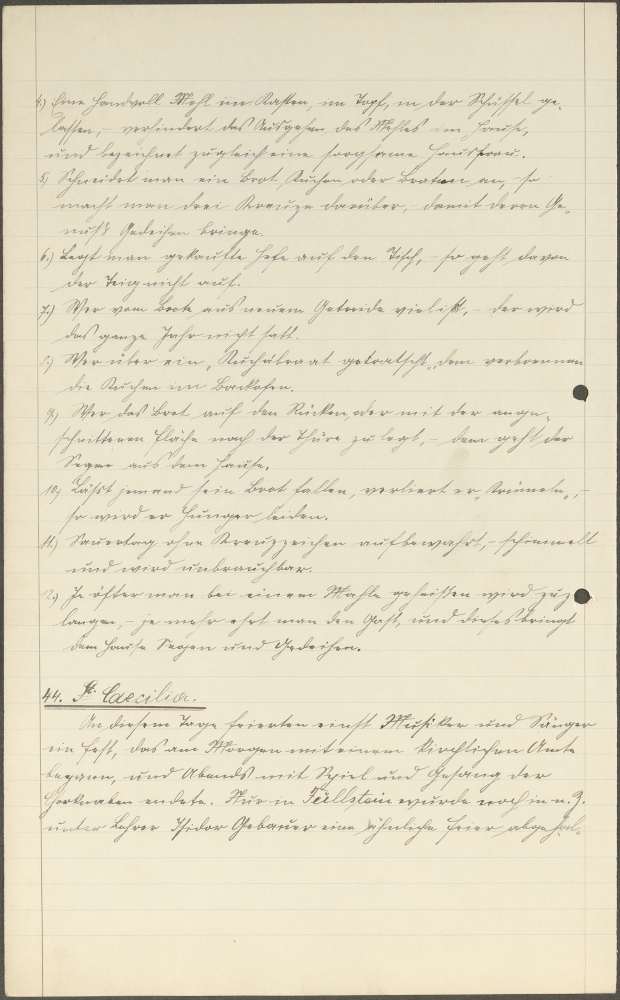 4.) Eine Handvoll Mehl im Kasten, im Topf, in der Schüssel ge-
lassen, – verhindert das Ausgehen des Mehles im Hause,
und bezeichnet zugleich eine sorgsame Hausfrau.
5.) Schneidet man ein Brot, Kuchen oder Braten an, – so
macht man drei Kreuze darüber, – damit deren Ge-
nuß Gedeihen bringe.
6.) Legt man gekaufte Hefe auf den Tisch, – so geht davon
der Teig nicht auf.
7.) Wer vom Brote aus neuem Getreide viel ißt, – der wird
das ganze Jahr nicht satt.
8.) Wer über ein „Kuchabraat getratscht“, dem verbrennen
die Kuchen im Backofen.
9.) Wer das Brot auf den Rücken oder mit der ange-
schnittenen Fläche nach der Thüre zu legt, – dem geht der
Segen aus dem Hause.
10.) Läßt jemand sein Brot fallen, verliert er „Krümeln“, –
so wird er Hunger leiden.
11.) Sauerteig ohne Kreuzzeichen aufbewahrt, – schimmelt
und wird unbrauchbar.
12.) Je öfter man bei einem Mahle geheißen wird zuzu-
langen, – je mehr ehrt man den Gast, und dieses bringt
dem Hause Segen und Gedeihen.
44. St. Caecilia.
An diesem Tage feierten einst Musiker und Sänger
ein Fest, das am Morgen mit einem kirchlichen Amte
begann, und Abends mit Spiel und Gesang der
Chorknaben endete. Nur in Tüllstein wurde noch in n. Z.
unter Lehrer Isidor Gebauer eine ähnliche Feier abgehal-